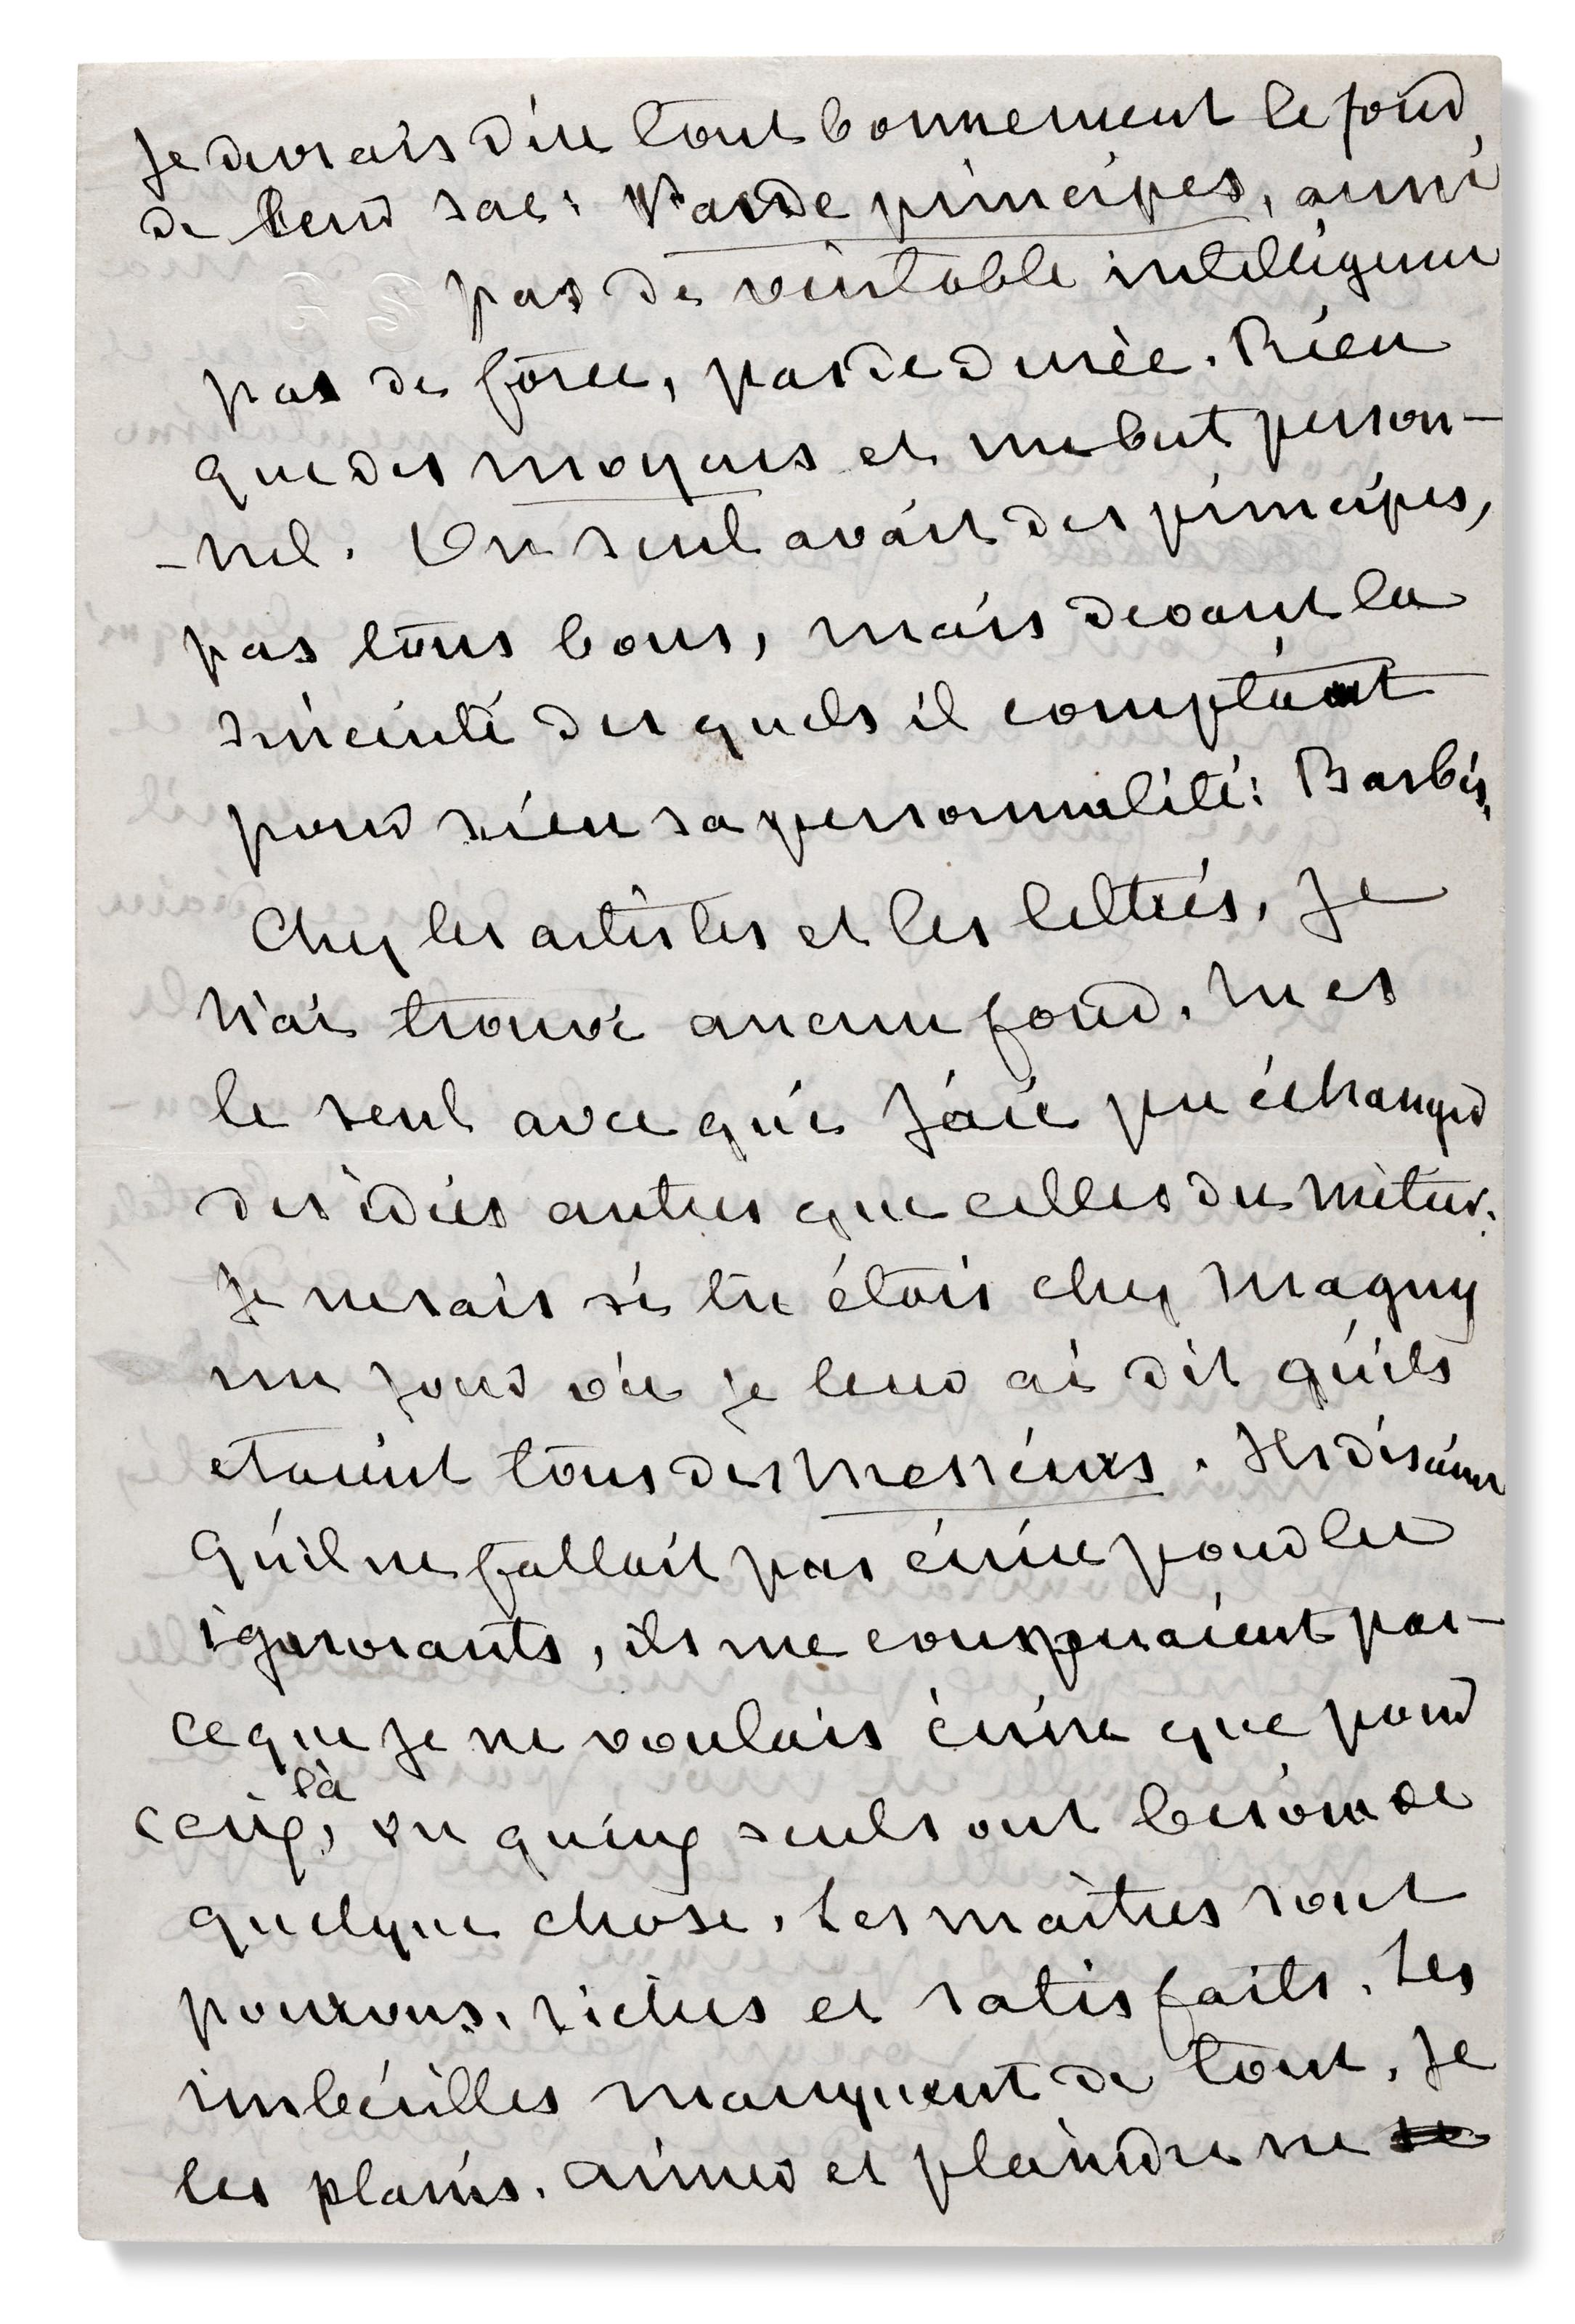 Je devrais dire tout bonnement le fond
de leur sac: Pas de principes, aussi
pas de véritable intelligence
pas de force, pas de durée. Rien
que des moyens et un but person-
-nel. Un seul avait des principes,
pas tous bons, mais devant la
sincérité desquels il comptait
pour rien sa personnalité: Barbès,
Chez les artistes et les lettrés, Je
n'ai trouvé aucun fond. tu es
le seul avec qui j'aie pu échanger
des idées autres que celles du métier.
Je ne sais si tu étais chez Magny
un jour où je leur ai dit qu'ils
etaient tous des Messieurs. Ils disaient
qu'il ne fallait pas écrire pour les
ignorants, ils me conspuaient par-
ceque je ne voulais écrire que pour
ceux là, vu qu'eux seuls ont besoin de
quelque chose. Les maîtres sont
pourvus, riches et satisfaits. Les
imbécilles manquent de tout, Je
les plains. aimer et plaindre ne se